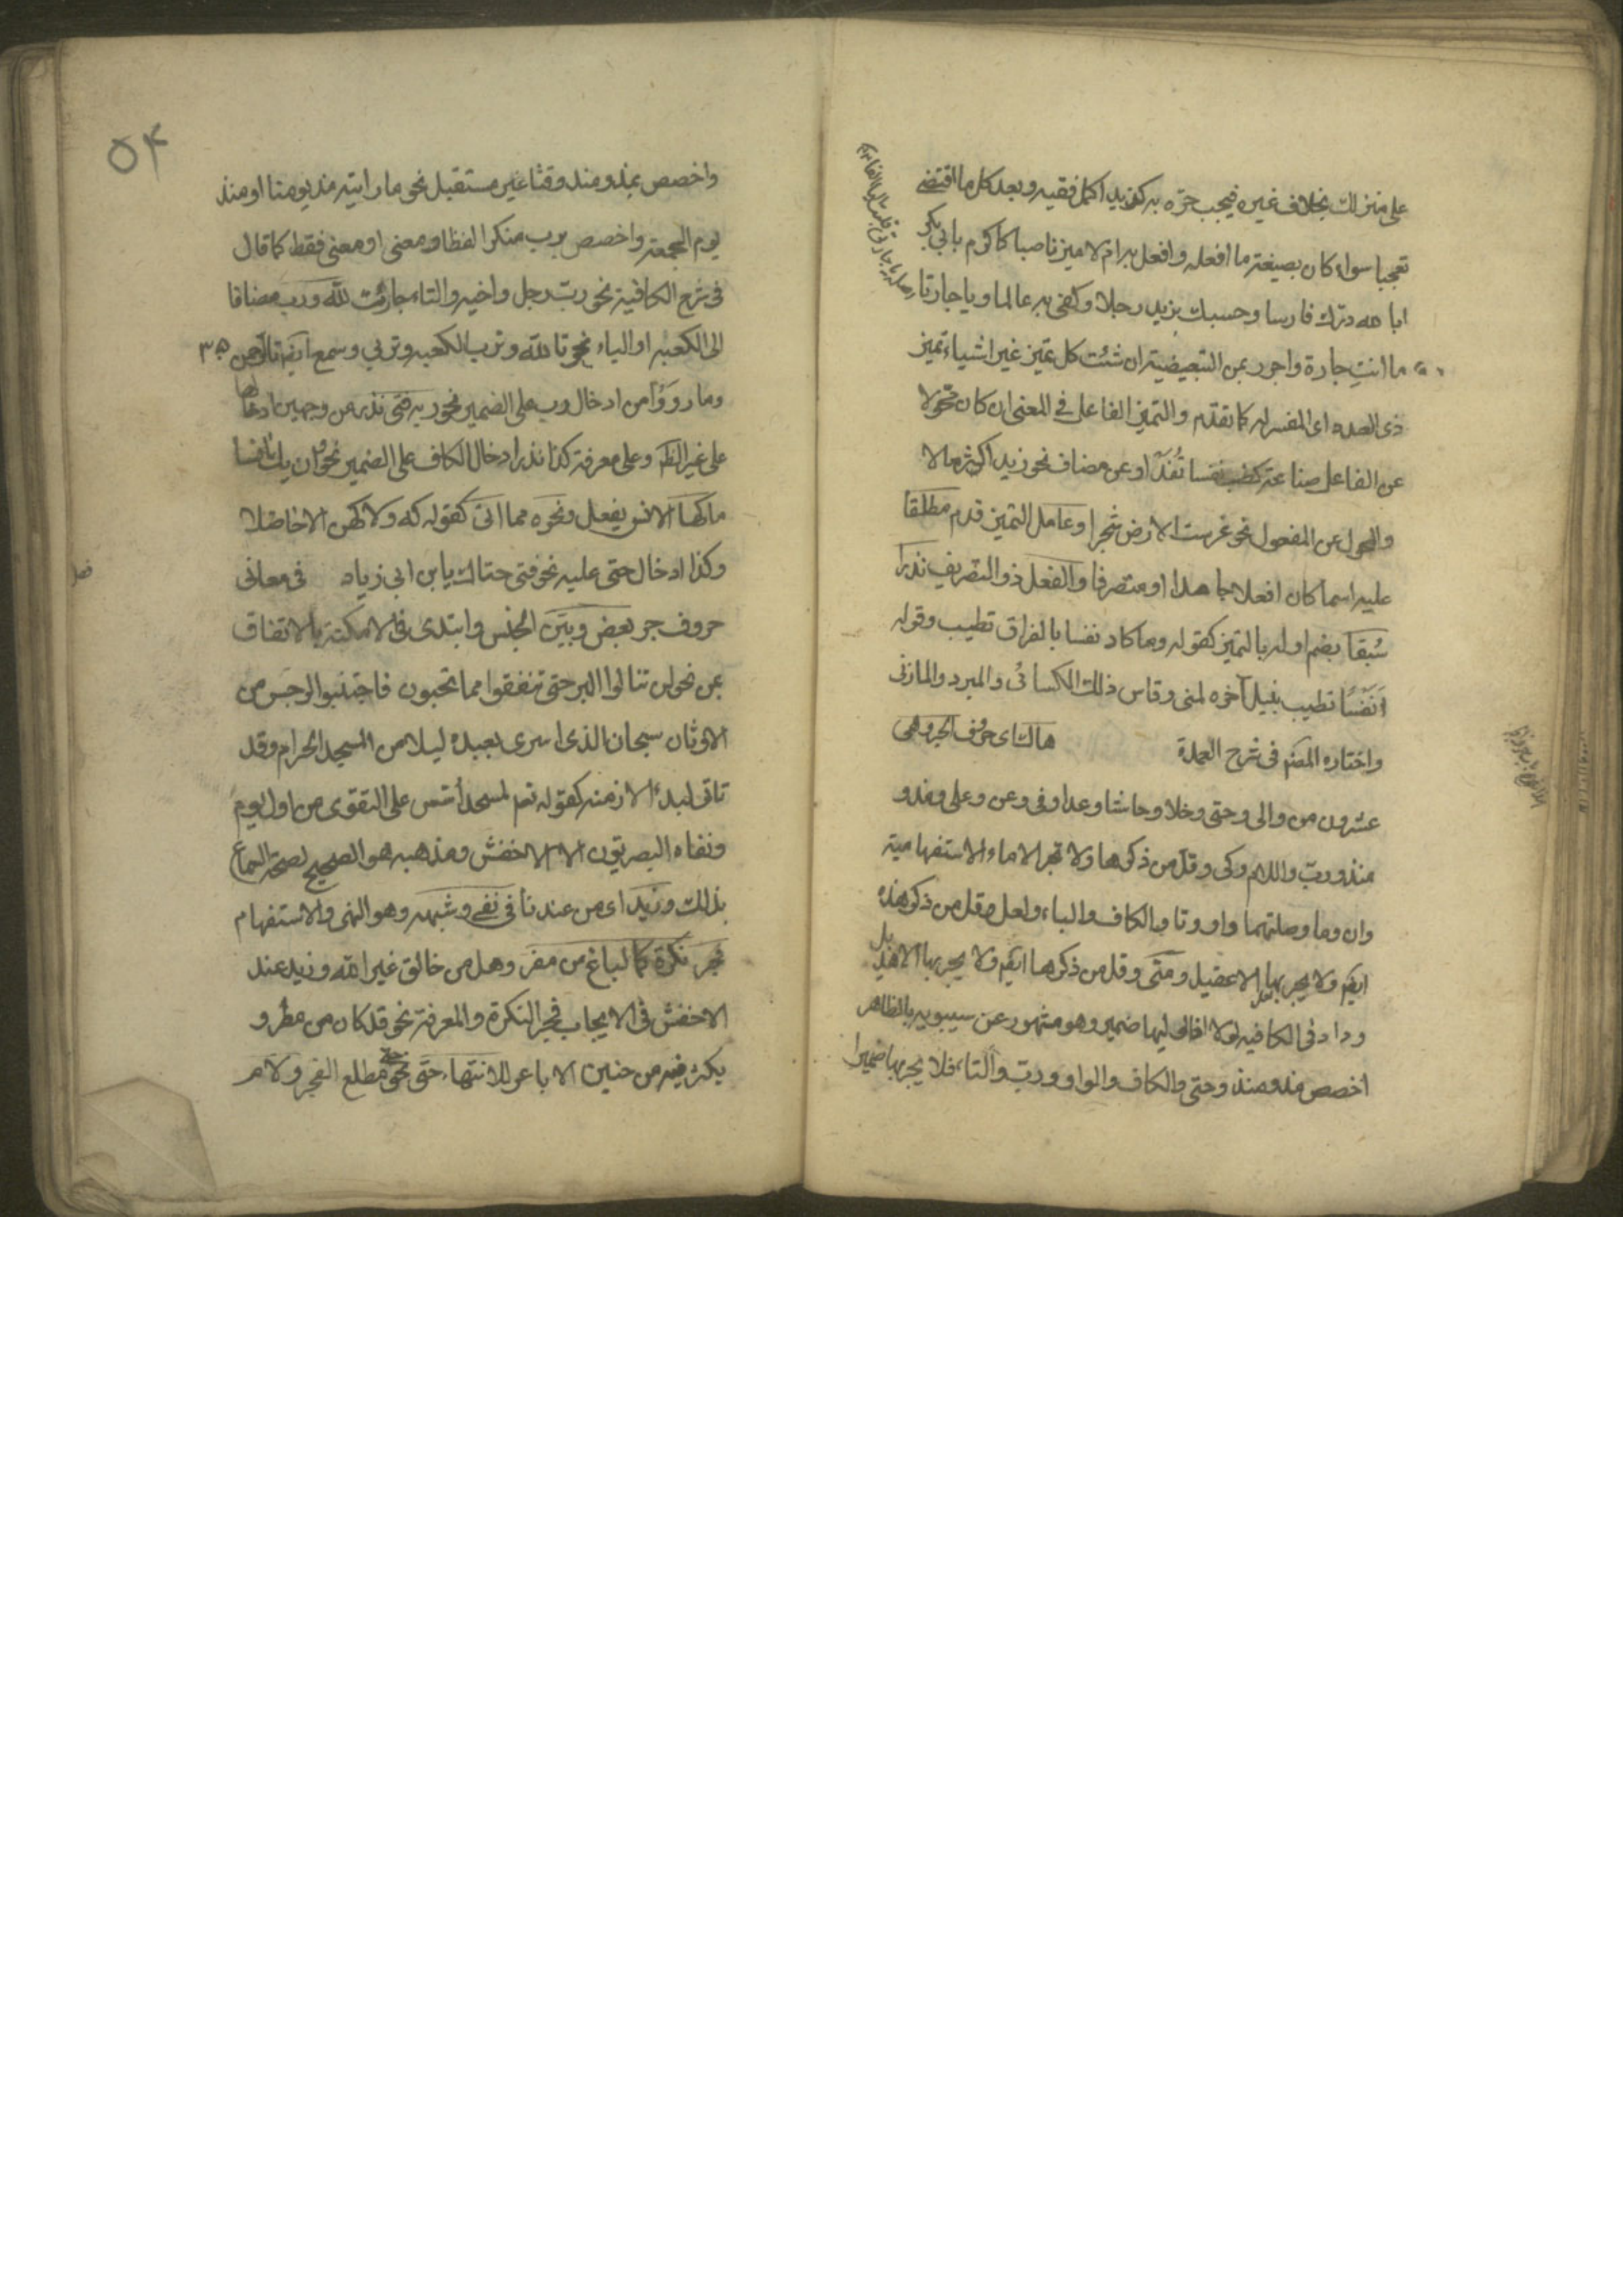 على منزلك بخلاف غيره فيجب جره به كزيد اكمل فقيه وبعد كل ما اقتضى
تعجبا سواء كان بصيغة ما افعله وافعل به ام لا ميز ناصبا كاكرم بابى بكر
ابا لله درك فارسا وحسبك بزيد رجلا وكفى به عالما ويا جارتا
ما انت جارة واجرر بمن التبعيضية ان شئت كل تميز غير اشياء تميز
ذى العدد اى المفسر له كما تقدم والتميز الفاعل فى المعنى ان كان محولا
عن الفاعل صناعة كطب نفسا تُفَدْ او عن مضاف نحو زيد اكثر مالا
والمحول عن المفعول نحو غرست الارض شجرا وعامل التميز قدم مطلقا
عليه اسما كان او فعلا جامدا او متصرفا والفعل ذو التصريف نذرا
سُبقا بضم اوله بالتميز كقوله وما كاد نفسا بالفراق تطيب وقوله
اَنَفْسًا تطيب بنيل آخره لمنى وقاس ذلك الكسائى والمبرد والمازنى
واختاره المصنف فى شرح العمدة هاك اى حروف الجر وهى
عشرون من والى وحتى وخلا وحاشا وعدا وفى وعن وعلى ومذ و
منذ ورب واللام وكى وقل من ذكرها ولا تجر الا ما الاستفهامية
وان وما وصلتهما واو وتا والكاف والباء ولعل وقل من ذكر هذه
ايضم ولا يجر بها الا عقيل ومتى وقل من ذكرها ايضم ولا يجر بها الا هذيل
وزاد فى الكافية لولا اذا ولها ضمير وهو مشهور عن سيبويه بالظاهر
اخصص مذ ومنذ وحتى والكاف والواو ورب والتاء فلا يجر بها ضميرا
٥٤
واخصص بمذ ومنذ وقتا غير مستقبل نحو ما رايته مذ يومنا او منذ
يوم الجمعة واخصص برب منكرا لفظا ومعنى او معنى فقط كما قال
فى شرح الكافية نحو رب رجل واخيه والتاء جارت لله ورب مضافا
الى الكعبه او الياء نحو تالله وترب الكعبه وتربي وسمع ايضم تالرحمن
وما رووا من ادخال رب على الضمير نحو ربه فتى نذر من وجهين ادخالها
على غير الظم وعلى معرفة كذا نذر ادخال الكاف على الضمير نحو وان يك انسا
ما كها الانس يفعل ونحوه مما اتى كقوله كه ولا كهن الا حاظلا
وكذا ادخال حتى عليه نحو فتى حتاك يابن ابى زياد فى معانى
حروف جر بعض وبين الجنس وابتدى فى الامكنة بالاتفاق
بمن نحو لن تنالوا البر حتى تنفقوا مما تحبون فاجتنبوا الرجس من
الاوثان سبحان الذى اسرى بعبده ليلا من المسجد الحرام وقد
تاتى لبدء الازمنة كقوله تعم لمسجد اُسّس على التقوى من اول يوم
ونفاه البصريون الا الاخفش ومذهبه هو الصحيح لصحة السماع
بذلك وزيد اى من عندنا فى نفى وشبهه وهو النهى والاستفهام
فجر نكرة كما لباغ من مفر وهل من خالق غير الله وزيد عند
الاخفش فى الايجاب فجر النكرة والمعرفة نحو قد كان من مطر و
يكثر فيه من حنين الاباعر للانتهاء حتى نحو حتى مطلع الفجر ولام